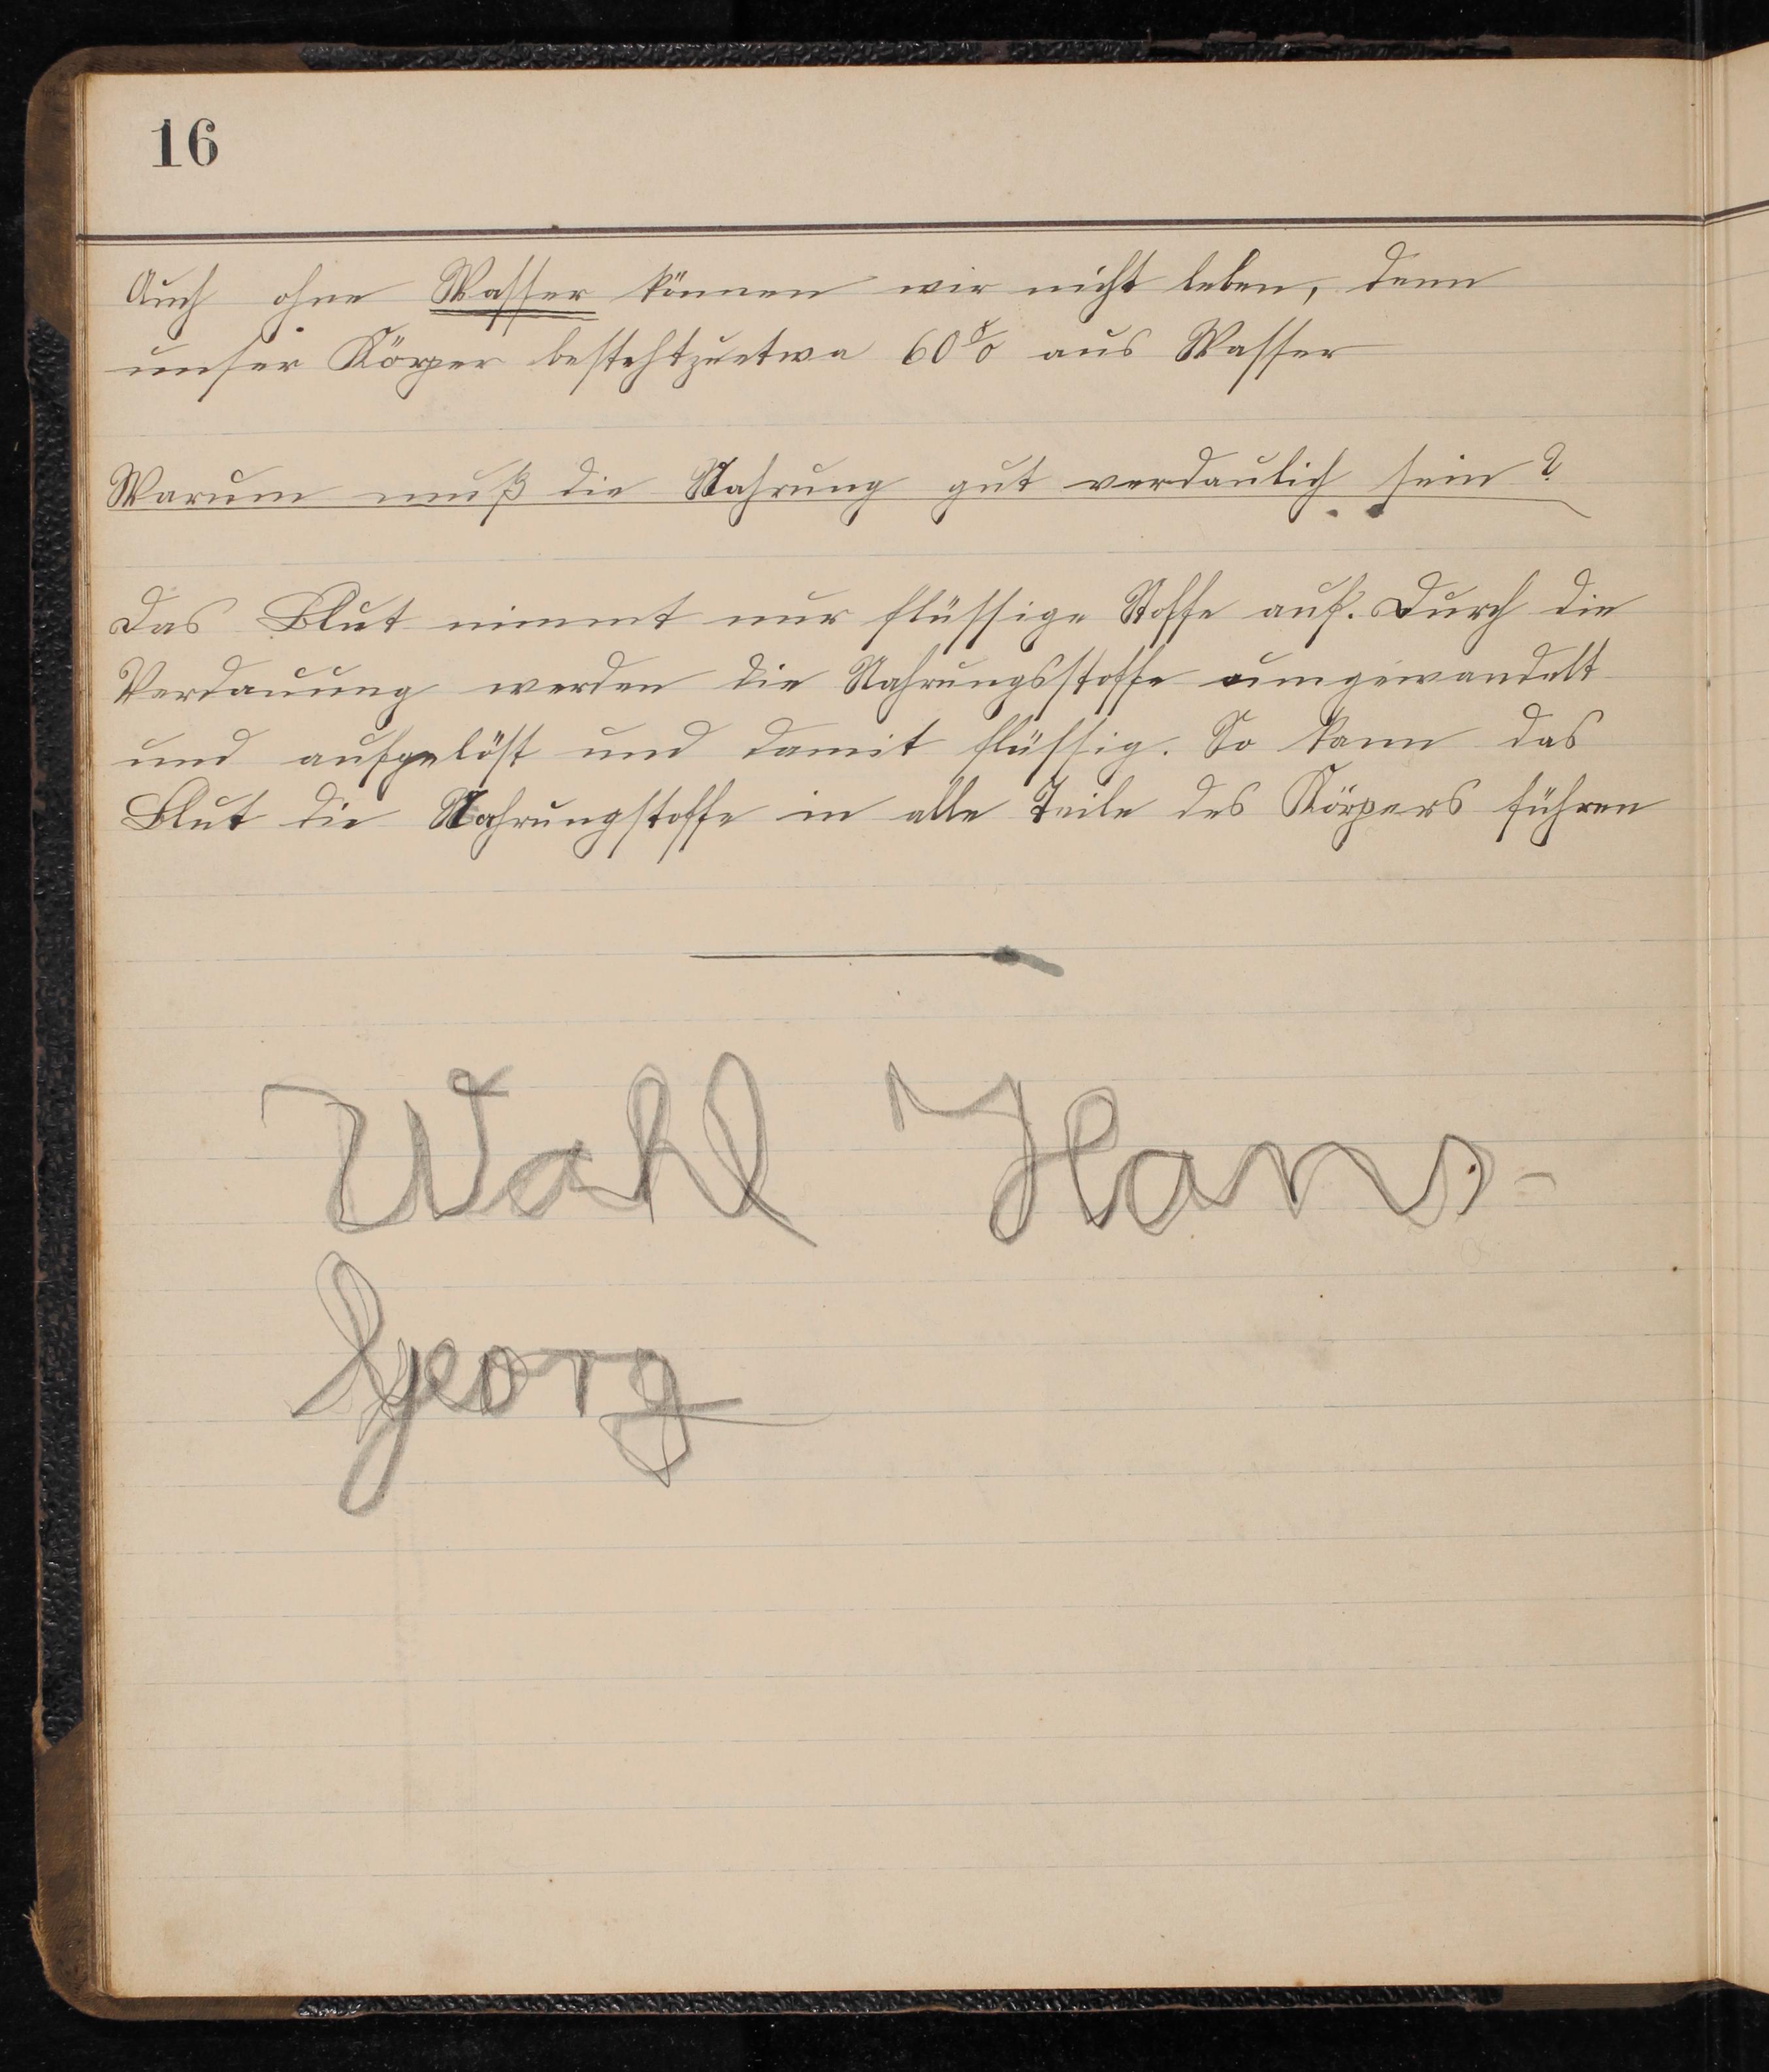 16
Auch ohne Wasser können wir nicht leben, denn
unser Körper besteht zu etwa 60% aus Wasser
Warum muß die Nahrung gut verdaulich sein?
Das Blut nimmt nur flüssige Stoffe auf. Durch die
Verdauung werden die Nahrungsstoffe umgewandelt
und aufgelöst und damit flüssig. So kann das
Blut die Nahrungstoffe in alle Teile des Körpers führen
Wahl Hans-
Georg